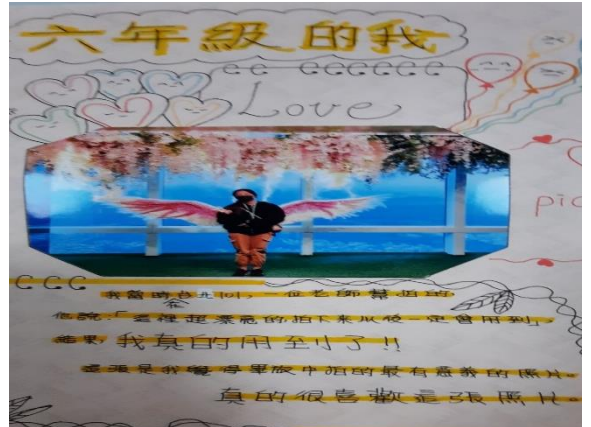 六年級的我
Love
pic
我當時在九份,一位老師幫拍的
他說:「這裡超漂亮的拍下來以後一定會用到」
結果,我真的用到了!!
這張是我覺得畢旅中拍的最有意義的照片。
真的很喜歡這張照片。